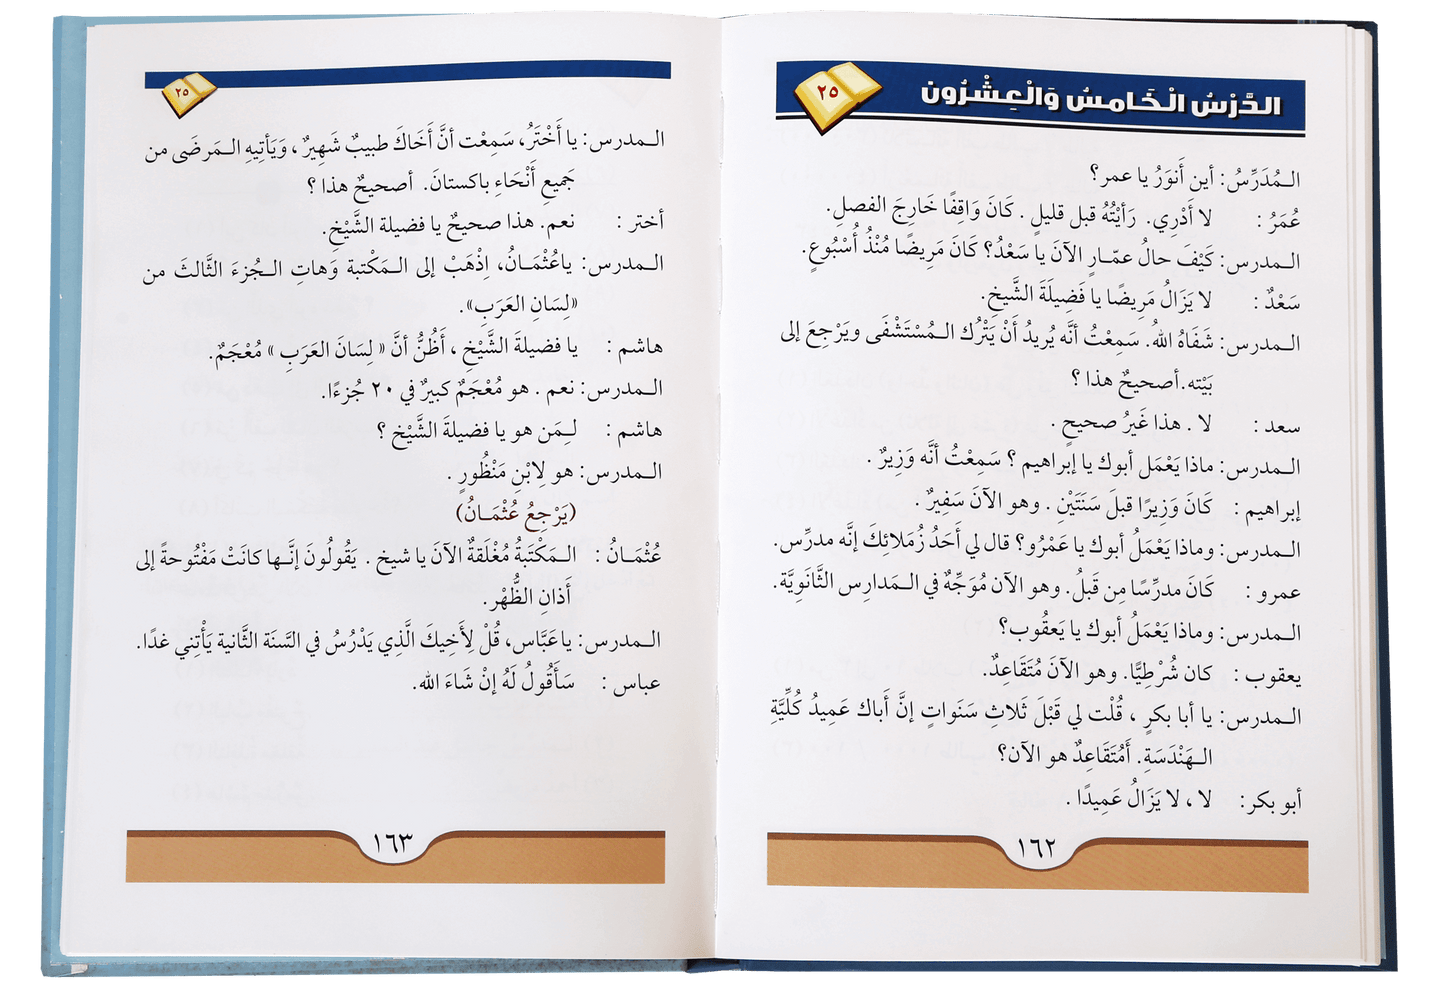 ٢٥ الدَّرْسُ الْخَامِسُ وَالْعِشْرُون
الـمُدَرِّسُ: أين أَنوَرُ يا عمر؟
عُمَرُ : لا أَدْرِي. رَأَيْتُهُ قبل قليلٍ . كَانَ وَاقِفًا خَارِجَ الفصلِ.
الـمدرس: كَيْفَ حالُ عمّـارٍ الآنَ يا سَعْدُ؟ كَانَ مَرِيضًا مُنْذُ أُسْبُوعٍ.
سَعْدٌ : لا يَزَالُ مَرِيضًا يا فَضِيلَةَ الشَّيخِ.
الـمدرس: شَفَاهُ اللهُ. سَمِعْتُ أنَّه يُريدُ أَنْ يَتْرُك الـمُسْتَشْفَى ويَرْجِعَ إلى
بَيْته.أصحيحٌ هذا ؟
سعد : لا . هذا غَيرُ صحيحٍ .
الـمدرس: ماذا يَعْمَل أبوك يا إبراهيم ؟ سَمِعْتُ أنَّه وَزِيرٌ .
إبراهيم : كَانَ وَزِيرًا قبلَ سَنَتَيْنِ . وهو الآنَ سَفِيرٌ .
الـمدرس: وماذا يَعْمَلُ أبوك يا عَمْرُو؟ قال لي أَحَدُ زُمَلائِكَ إنَّه مدرِّس.
عمرو : كَانَ مدرِّسًا مِن قَبلُ. وهو الآن مُوَجِّهٌ في الـمَدارِس الثَّانَوِيَّة.
الـمدرس: وماذا يَعْمَلُ أبوك يا يَعقُوب؟
يعقوب : كان شُرْطِيًّا. وهو الآنَ مُتَقَاعِدٌ.
الـمدرس: يا أبا بكرٍ ، قُلْت لي قَبْلَ ثَلاثِ سَنَواتٍ إنَّ أَباك عَمِيدُ كُلِّيَّةِ
الـهَنْدَسَةِ. أَمُتَقَاعِدٌ هو الآن؟
أبو بكر: لا ، لا يَزَالُ عَمِيدًا .
١٦٢
٢٥
الـمدرس: يا أَخْتَرُ، سَمِعْت أنَّ أَخَاكَ طبيبٌ شَهِيرٌ ، وَيَأتِيهِ الـمَرضَى من
جَميعِ أَنْحَاءِ باكستانَ. أصحيحٌ هذا ؟
أختر : نعم. هذا صحيحٌ يا فضيلة الشَّيْخِ.
الـمدرس: ياعُثْمَـانُ، اِذْهَبْ إلى الـمَكْتبة وَهاتِ الـجُزءَ الثَّالثَ من
«لِسَانِ العَرَبِ».
هاشم : يا فضيلةَ الشَّيْخِ ، أَظُنُّ أنَّ « لِسَانَ العَرَبِ » مُعْجَمٌ.
الـمدرس: نعم . هو مُعْجَمٌ كبيرٌ في ٢٠ جُزءًا.
هاشم : لـِمَن هو يا فضيلةَ الشَّيْخ ؟
الـمدرس: هو لِابْنِ مَنْظُورٍ .
(يَرْجِعُ عُثْمَـانُ)
عُثْمَـانُ : الـمَكْتَبَةُ مُغْلَقةٌ الآنَ يا شيخ . يَقُولُونَ إنَّـها كانَتْ مَفْتُوحةً إلى
أَذانِ الظُّهْر.
الـمدرس: ياعَبَّاس، قُلْ لِأَخِيكَ الَّذِي يَدْرُسُ في السَّنَة الثَّانية يَأْتِني غدًا.
عباس : سَأَقُولُ لَهُ إنْ شَاءَ الله.
١٦٣